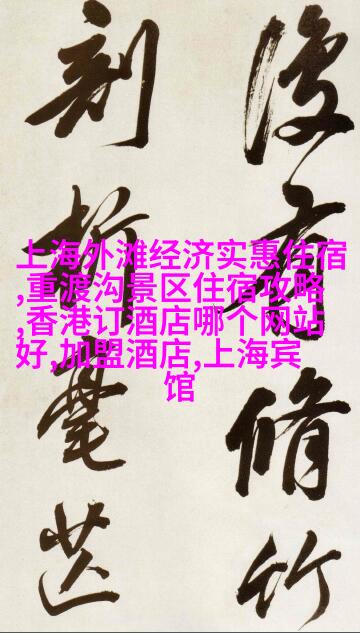 上海外滩经济实惠住宿
,重渡沟景区住宿攻略
,香港订酒店哪个网站
好,加盟酒店,上海宾
馆
有脩竹
刻